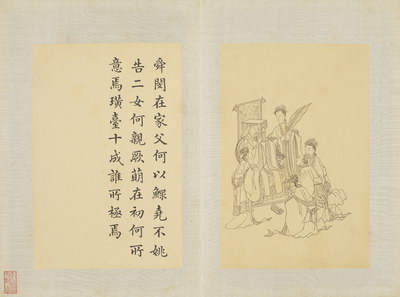 舜閔在家父何以鰥堯不姚
告二女何親厥萌在初何所
意焉璜臺十成誰所極焉